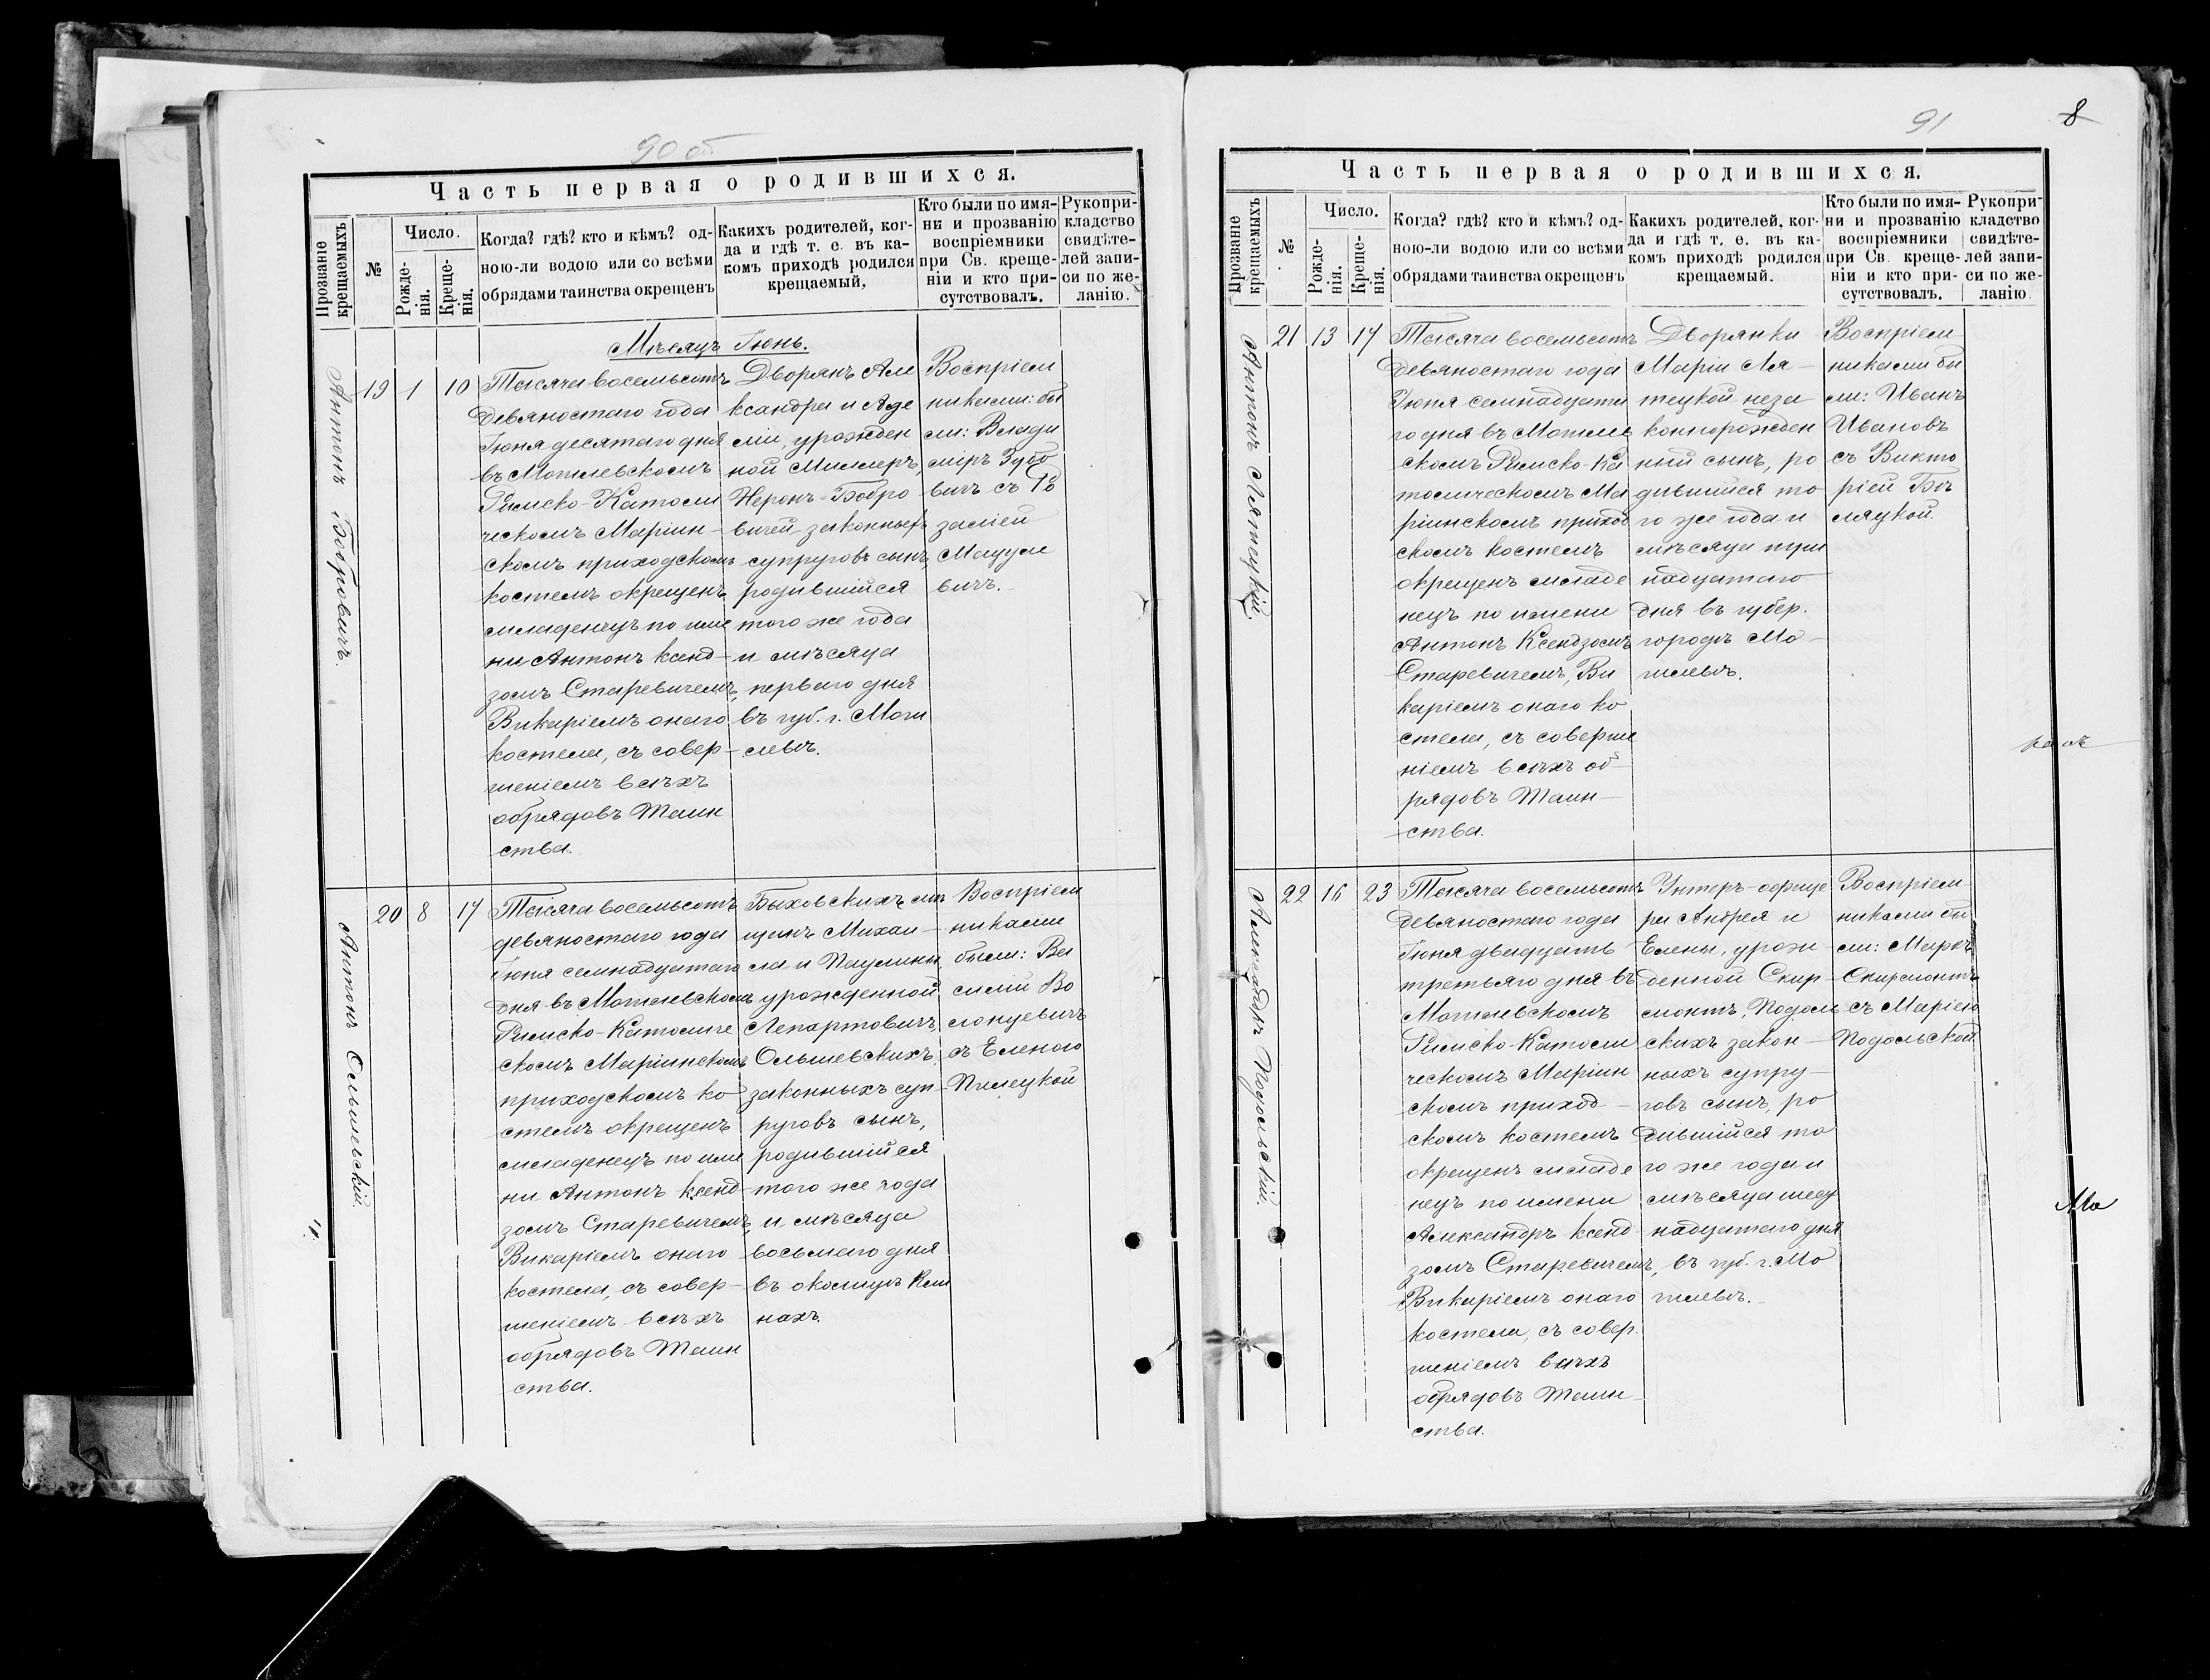 90 об
Часть первая о родившихся.
Прозваніе крещаемыхъ
№
Число.
Рожде-
нія.
Креще-
нія.
Когда? гдѣ? кто и кѣмъ? од-
ною-ли водою или со всѣми
обрядами таинства окрещенъ
Какихъ родителей, ког-
да и гдѣ т. е. въ ка-
комъ приходѣ родился
крещаемый,
Кто были по имя-
ни и прозванію
воспріемники
при Св. креще-
ніи и кто при-
сутствовалъ.
Рукопри-
кладство
свидѣте-
лей запи-
си по же-
ланію.
Мѣсяцъ Іюнь.
Антонъ Бобровичъ.
19 1 10
Тысяча восемьсотъ
девяностаго года
Іюня десятаго дня
въ Могилевскомъ
Римско-Католи
ческомъ Маріин-
скомъ приходскомъ
костелѣ окрещенъ
младенецъ по име
ни Антонъ ксенд-
зомъ Старевичемъ,
Викаріемъ онаго
костела, съ совер-
шеніемъ всѣхъ
обрядовъ Таин
ства.
Дворянъ Але
ксандра и Аде
ліи, урожден
ной Миллеръ,
Неронъ-Бобро
вичей, законныхъ
супруговъ сынъ,
родившійся
того же года
и мѣсяца
перваго дня
въ губ. г. Моги
левѣ.
Воспріем
никами: бы
ли: Влади
міръ Зубо
вичъ съ Ро
заліей
Мацуле
вичъ.
Антонъ Ольшевскій.
20 8 17
Тысяча восемьсотъ
девяностаго года
Іюня семнадцатаго
дня въ Могилевскомъ
Римско-Католиче
скомъ Маріинскомъ
приходскомъ ко
стелѣ окрещенъ
младенецъ по име
ни Антонъ ксенд-
зомъ Старевичемъ,
Викаріемъ онаго
костела, съ совер-
шеніемъ всѣхъ
обрядовъ Таин
ства.
Быховскихъ мѣ
щанъ Михаи-
ла и Паулины,
урожденной
Лепартовичъ,
Ольшевскихъ,
законныхъ суп-
руговъ сынъ,
родившійся
того же года
и мѣсяца
восьмаго дня
въ околицѣ
нахъ.
Воспріем
никами
были: Ва
силій Во
лонцевичъ
съ Еленою
Пилецкой
91
8
Часть первая о родившихся.
Прозваніе крещаемыхъ
№
Число.
Рожде-
нія.
Креще-
нія.
Когда? гдѣ? кто и кѣмъ? од-
ною-ли водою или со всѣми
обрядами таинства окрещенъ
Какихъ родителей, ког-
да и гдѣ т. е. въ ка-
комъ приходѣ родился
крещаемый.
Кто были по имя-
ни и прозванію
воспріемники
при Св. креще-
ніи и кто при-
сутствовалъ.
Рукопри-
кладство
свидѣте-
лей запи-
си по же-
ланію.
Антонъ Лятецкій.
21 13 17
Тысяча восемьсотъ
девяностаго года
Іюня семнадцата
го дня въ Могилев
скомъ Римско-Ка
толическомъ Ма
ріинскомъ приход
скомъ костелѣ
окрещенъ младе
нецъ по имени
Антонъ Ксендзомъ
Старевичемъ, Ви
каріемъ онаго ко
стела, съ соверше
ніемъ всѣхъ об-
рядовъ Таин-
ства.
Дворянки
Маріи Ля-
тецкой неза
коннорожден
ный сынъ, ро
дившійся то
го же года и
мѣсяца три
надцатаго
дня въ губер.
городѣ Мо-
гилевѣ.
Воспріем
никами бы
ли: Иванъ
Ивановъ
съ Викто
ріей
Александръ Подольскій.
22 16 23
Тысяча восемьсотъ
девяностаго года
Іюня двадцать
третьяго дня въ
Могилевскомъ
Римско-Католи
ческомъ Маріин
скомъ приход-
скомъ костелѣ
окрещенъ младе
нецъ по имени
Александръ ксенд
зомъ Старевичемъ,
Викаріемъ онаго
костела, съ совер.
шеніемъ всѣхъ
обрядовъ Таин-
ства.
Унтеръ-офице
ра Андрея и
Елены, урож
денной Скир-
монтъ, Подоль
скихъ закон-
ныхъ супру-
говъ сынъ, ро
дившійся то
го же года и
мѣсяца шест
надцатаго дня
въ губ. г. Мо
гилевѣ.
Воспріем
никами бы
ли: Маркъ
Скирмонтъ
съ Маріею
Подольской
Мо